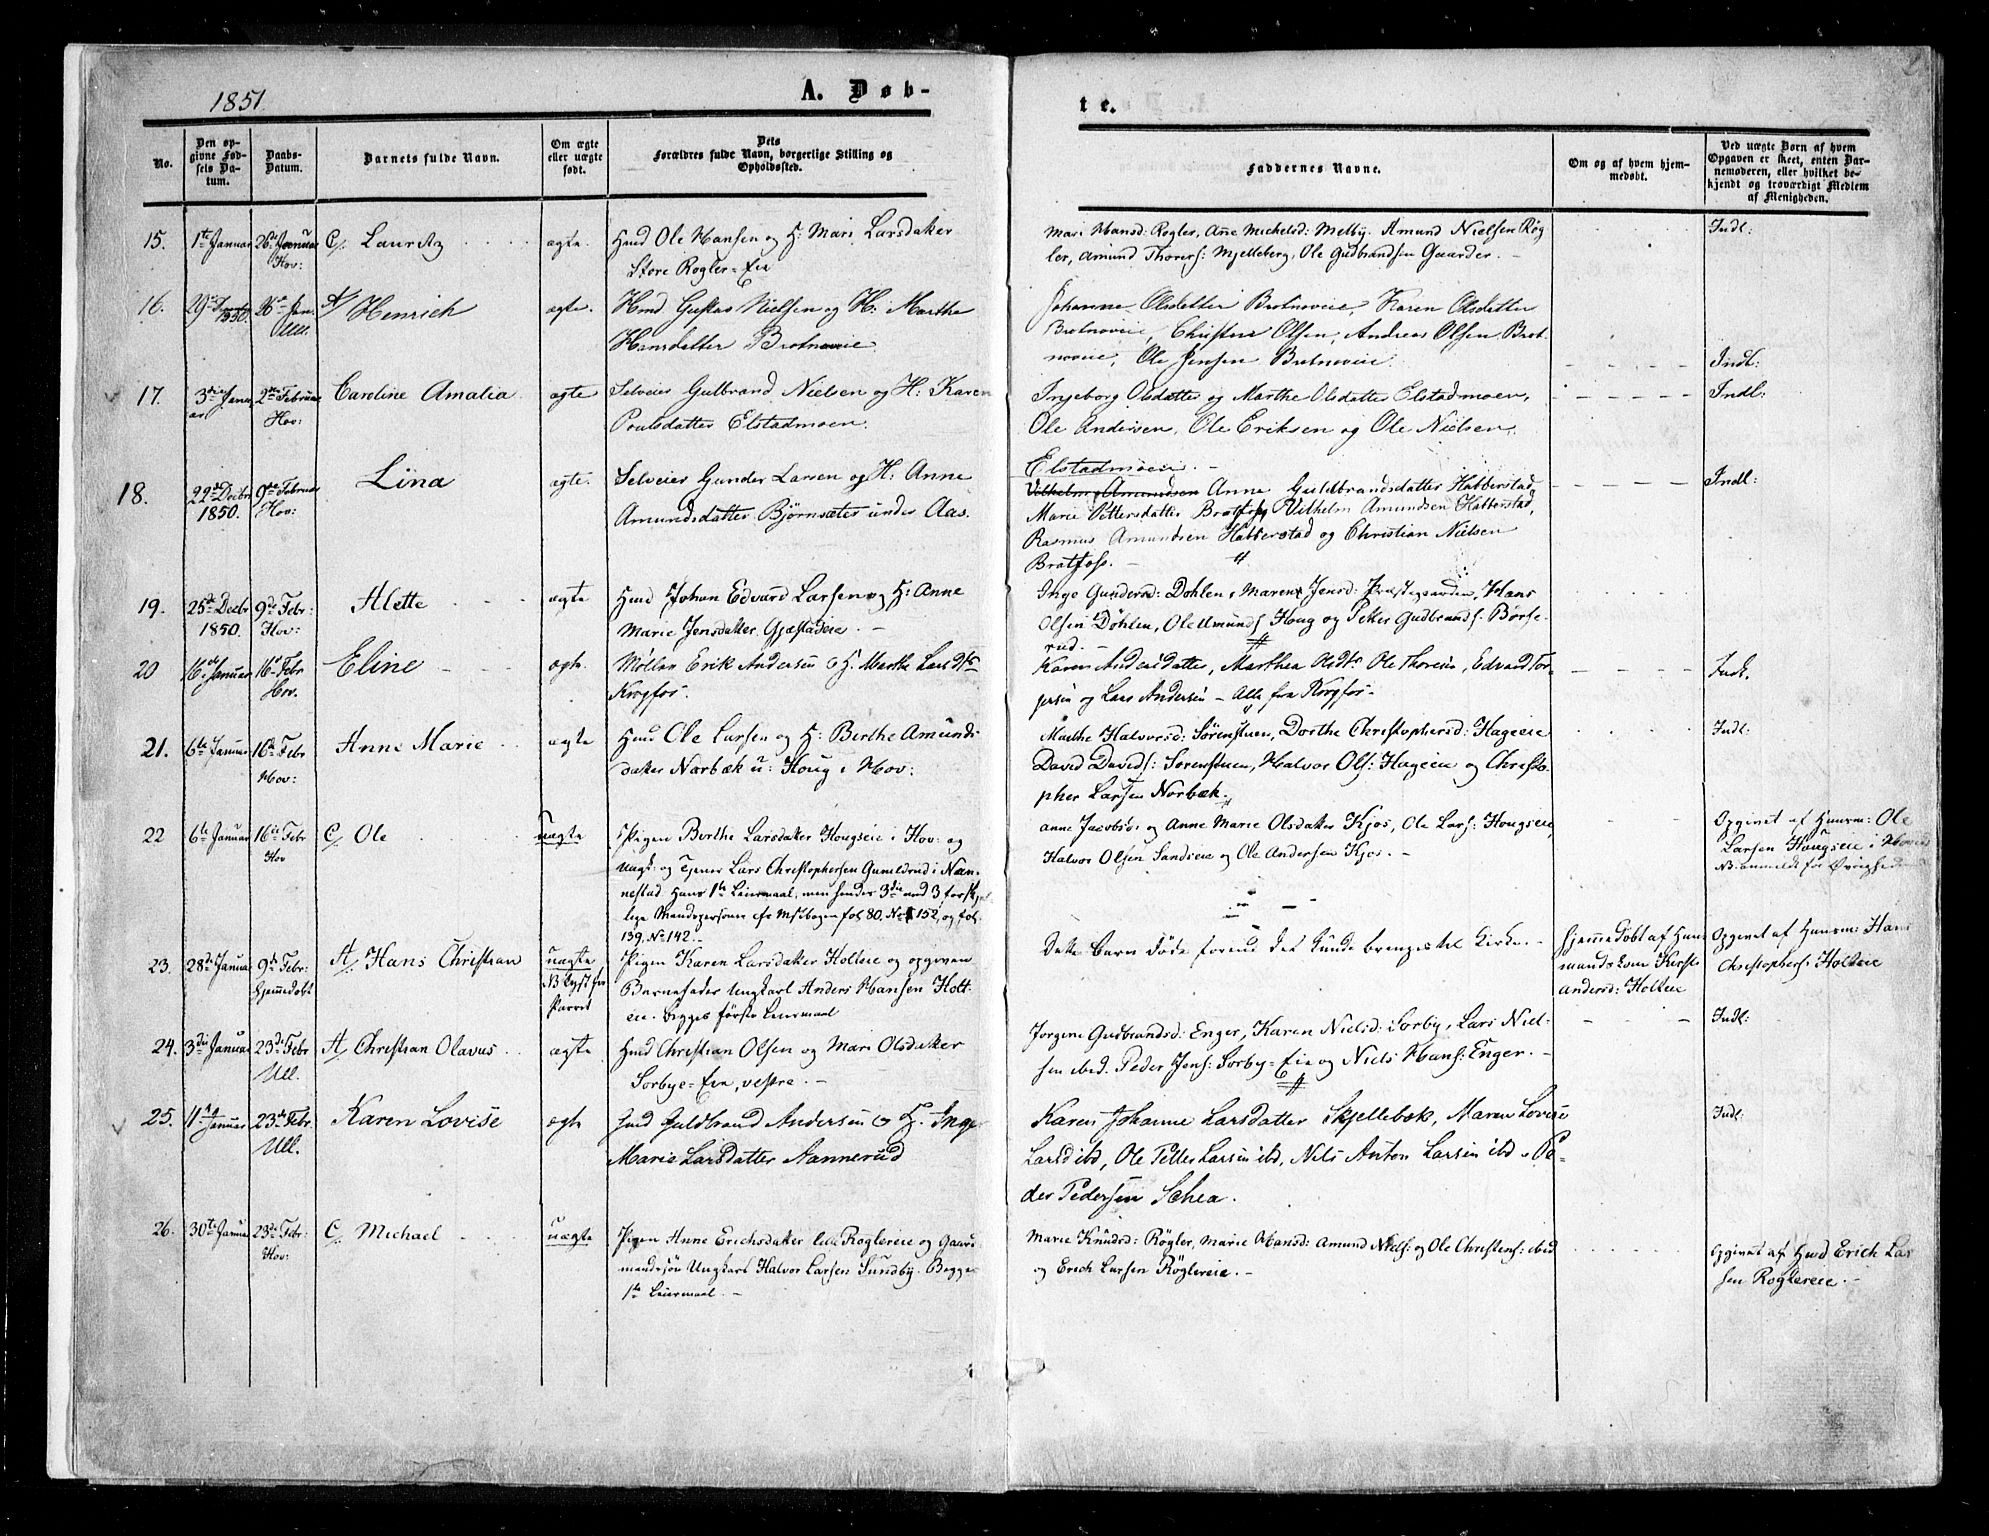 1851
A. Døb-
te.
No.
Den opgivne Fødsels Datum.
Daabs-Datum.
Barnets fulde Navn.
Om ægte eller uægte født.
Dets Forældres fulde Navn, borgerlige Stilling og Opholdssted.
Faddernes Navne.
Om og af hvem hjemmedøbt.
Ved uægte Børn af hvem Opgaven er skeet, enten Barnemoderen, eller hvilket bekjendt og troværdigt Medlem af Menigheden.
15. 1te Januar 26de Januar Hov: Lauritz ægte.
Husd Ole Hansen og H: Mari Larsdatter
Store Rogler-Eie
Mari Hansd: Rogler, Anne Michelsd: Melby. Amund Nielsen Røg
ler, Amund Thorers: Mjelleberg, Ole Gudbrandsen Gaarder. -
Indl:
16. 1850. 26de Jan. Ull. Henrich ægte.
Husd Gustav Nielsen og H: Marthe
Hansdatter Brotnoveie
Johanne Olsdatter Brotnoveie, Karen Olsdatter
Brotnoveie, Christen Olsen, Andreas Olsen Brot
noveie, Ole Jensen Brotnoveie.
Indl:
17. 3die Januar 2den Februar Hov: Caroline Amalia ægte
Selveier Gulbrand Nielsen og H: Karen
Poulsdatter Elstadmoen.
Ingeborg Olsdatter og Marthe Olsdatter Elstadmoen,
Ole Andersen, Ole Eriksen og Ole Nielsen,
Elstadmoeie. -
Indl:
18. 22de Decbr 1850. 9de Februar Hov: Lina ægte.
Selveier Gunder Larsen og H: Anne
Amundsdatter Bjørnsæter under Aas.
Vilhelm Amundsen Anne Guldbrandsdatter Habberstad
Marie Pettersdatter Bratfoss, Vilhelm Amundsen Habberstad,
Rasmus Amundsen Habberstad og Christian Nielsen
Bratfoss. -
Indl:
19. 25de Decbr 1850. 9de Febr: Hov: Alette ægte
Husd Johan Edvard Larsen og H: Anne
Marie Jensdatter Gjæstadeie. -
Inge Gundersd: Døhlen, Maren Jensd: Præstegaarden, Hans
Olsen Døhlen, Ole Amunds: Houg og Peter Gudbrands: Børse-
rud. -
20 16de Januar 16de Febr Hov. Eline ægte
Møller Erik Andersen & H. Marthe Larsdtr
Krogfos.
Karen Andersdatter, Marthea Olsdtr Ole Thoresen, Edvard Tor-
gersen og Lars Andersen - Alle fra Krogfos -
Indl.
21. 6te Januar 16de Febr Hov: Anne Marie ægte
Husd Ole Larsen og H: Berthe Amunds
datter Narbæk u: Houg i Hov:
Marthe Halvorsd: Sørenstuen, Dorthe Christophersd: Hageeie
David Davids: Sørenstuen, Halvor Ols: Hageeie og Christo-
pher Larsen Norbæk.
Indl:
22 6te Januar 16de Febr Hov Ole uægte
Pigen Berthe Larsdatter Hougseie i Hov: og
Ungk: og Tjener Lars Christophersen Gunildrud i Nan-
nestad Hans 1te Leiermaal, men hendes 3die med 3 forskjel
lige Mandspersoner cfr Mstbogen fol 80, No 152, og fol.
139. No 142.
Anne Jacobsd: og Anne Marie Olsdatter Kjos, Ole Lars: Hougseie,
Halvor Olsen Sandseie og Ole Andersen Kjos. -
Opgivet af Huusm: Ole
Larsen Hougseie i Hov
NB. anmeldt for Øvrigheden
23. 28de Januar 9de Febr: hjemmedøbt Hans Christian uægte
NB lyst for Parret
Pigen Karen Larsdatter Holteie og opgiven
Barnefader Ungkarl Anders Hansen Holt-
eie. Begges første Leiermaal
Dette Barn døde forend det kunde bringes til Kirke. -
hjemmedøbt af Huus
mands Kone Kirsti
Andersd: Holteie
Opgivet af Huusm: Hans
Christophers: Holteie
24. 3die Januar 23de Febr Ull. Christian Olavus ægte
Husd Christian Olsen og Mari Olsdatter
Sorbye-Eie, vestre. -
Jorgine Gudbrandsd: Enger, Karen Nielsd: Sorby, Lars Niel-
sen ibid. Peder Jens: Sorby-Eie og Niels Hans: Enger. -
Indl:
25. 11te Januar 23de Febr. Ull. Karen Lovise ægte
Husd Guldbrand Andersen & H. Inge
Marie Larsdatter Nannerud
Karen Johanne Larsdatter Skjellebæk, Maren Lovise
Larsd ibd, Ole Petter Larsen ibd, Nils Anton Larsen ibd & Pe-
der Pedersen Schea.
Indl:
26. 30te Januar 23de Febr: Hov: Michael uægte
Pigen Anne Erichsdatter Roglereie og Gaard
mandssøn Ungkarl Halvor Larsen Sundby. Begges
1te Leiermaal. -
Marie Knudsd: Røgler, Marie Hansd: Amund Niels: og Ole Christens: ibid
og Erich Larsen Røglereie. -
Opgivet af Husd Erich Lar
sen Roglereie. -